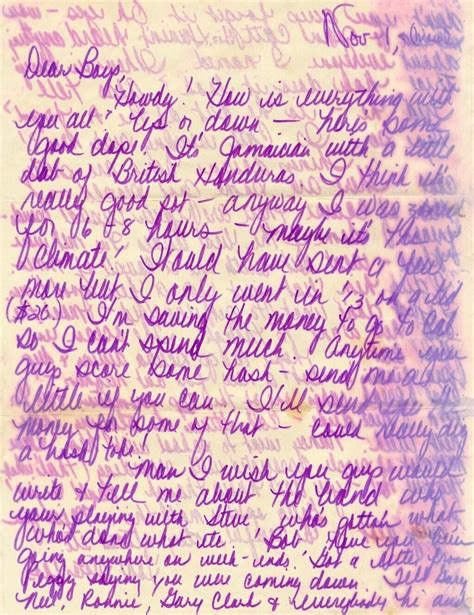 Nov. 1,
Dear Boys,
"Howdy"! How is everything with
you all? Up or down — here's some
good dope! It's Jamaican with a little
dab of British Honduras. I think it's
really good pot — anyway I was
for 6 or 8 hours — maybe it's the
Climate! Would have sent a few
more but I only went in 1/3 on a
($20) I'm saving the money to go to Cal.
so I can't spend much. Anytime you
guys score some hash — send me a
little if you can. I'll send you $
money for some of that — could really dig
a hash toke!
Man I wish you guys would
write & tell me about the band why
your playing with Steve, who's gottah what
who's done what etc. Bob have you been
going anywhere on week-ends? Got a letter from
Peggy saying you were coming down. Tell Gary
New, Ronnie, Gary Clark & everybody hi and